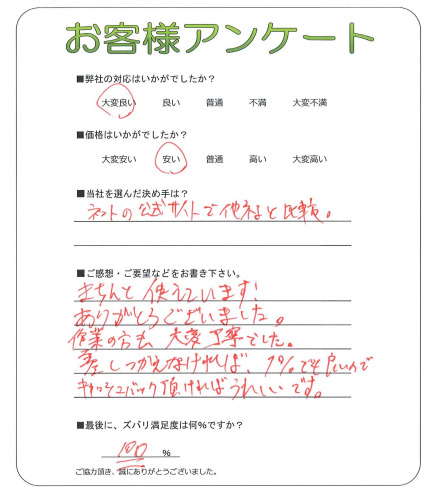 お客様アンケート
■弊社の対応はいかがでしたか？
大変良い 良い 普通 不満 大変不満
■価格はいかがでしたか？
大変安い 安い 普通 高い 大変高い
■当社を選んだ決め手は？
ネットの公式サイトで他社と比較。
■ご感想・ご要望などをお書き下さい。
きちんと使えています!
ありがとうございました。
作業の方も大変丁寧でした。
差しつかえなければ、1%でも良いので
キャッシュバック頂ければうれしいです。
■最後に、ズバリ満足度は何%ですか？
100 %
ご協力頂き、誠にありがとうございました。